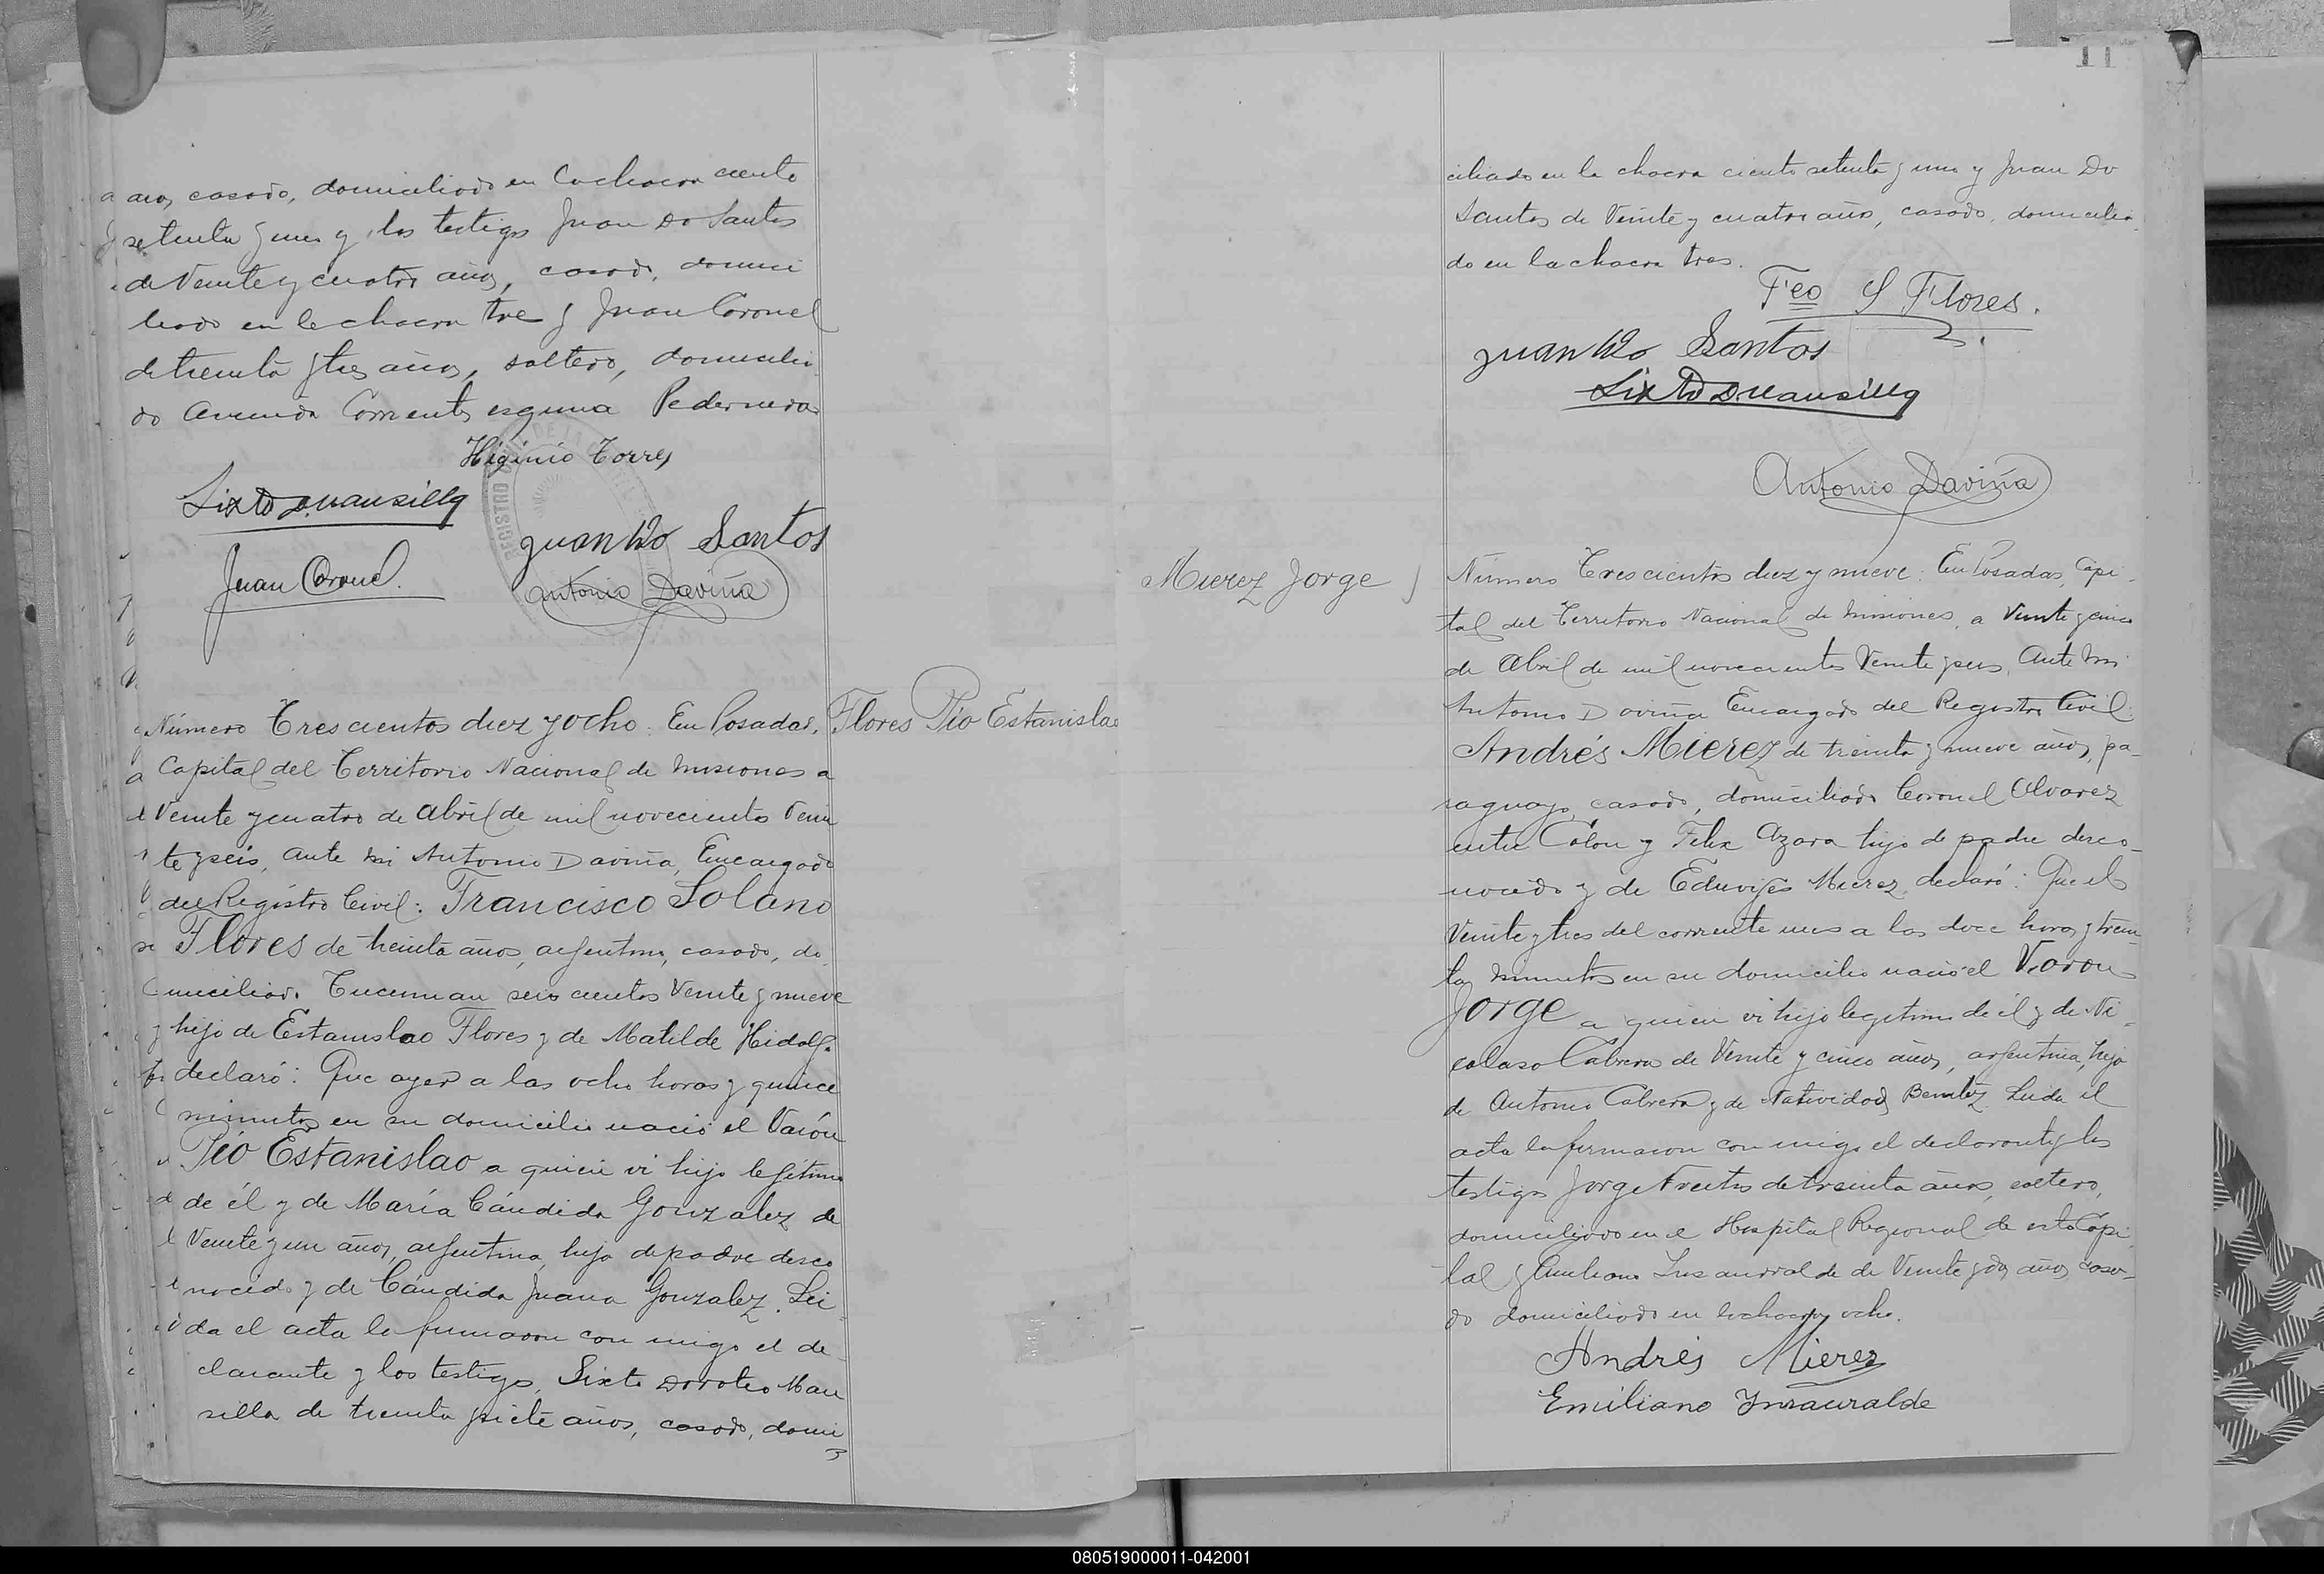 años, casado, domiciliado en la chacra ciento
setenta y uno y los testigos Juan Do Santos
de Veinte y cuatro años, casado, domici
liado en la chacra tres y Juan Coronel
de treinta y tres años, soltero, domicilia
do Avenida Corrientes esquina Pedernera
Higinio Torres
Sixto D. Mansilla
Juan Do Santos
Juan Coronel
Antonio Daviña
Número Trescientos diez y ocho. En Posadas,
Flores Pío Estanislao
Capital del Territorio Nacional de Misiones a
Veinte y cuatro de Abril de mil novecientos Vein
te y seis, ante mi Antonio Daviña, Encargado
del Registro Civil: Francisco Solano
Flores de treinta años, argentino, casado, do
miciliado Tucuman seis cientos Veinte y nueve
hijo de Estanislao Flores y de Matilde Hidalgo
declaró: Que ayer a las ocho horas y quince
minutos en su domicilio nació el Varón
Pío Estanislao a quien vi hijo legítimo
de él y de María Cándida Gonzalez de
Veinte y un años, argentina, hija de padre desco
nocido y de Cándida Juana Gonzalez. Lei
da el acta la firmaron con migo el de
clarante y los testigos, Sixto Doroteo Man
silla de treinta y siete años, casado, domi
11
ciliado en la chacra ciento setenta y uno y Juan Do
Santos de Veinte y cuatro años, casado, domicilia
do en la chacra tres.
Fco S Flores.
Juan Do Santos
Sixto D. Mansilla
Antonio Daviña
Mierez Jorge
Número Trescientos diez y nueve. En Posadas, Capi
tal del Territorio Nacional de Misiones, a Veinte y cinco
de Abril de mil novecientos Veinte y seis, Ante mi
Antonio Daviña Encargado del Registro Civil:
Andrés Mierez de treinta y nueve años, pa-
raguayo, casado, domiciliado Coronel Alvarez
entre Colon y Felix Azara hijo de padre desco-
nocido y de Eduvijes Mierez, declaró: Que el
Veinte y tres del corriente mes a las doce horas y trein-
ta minutos en su domicilio nació el Varon
Jorge a quien vi hijo legitimo de él y de Ni-
colasa Cabrera de Veinte y cinco años, argentina, hija
de Antonio Cabrera y de Natividad Benitez. Leida el
acta la firmaron con migo el declarante y los
testigos Jorge de treinta años, soltero,
domiciliado en el Hospital Regional de esta Capi
tal y Emiliano Insaurralde de Veinte y dos años, casa-
do domiciliado en la chacra ocho.
Andrés Mierez
Emiliano Ynsauralde
080519000011-042001